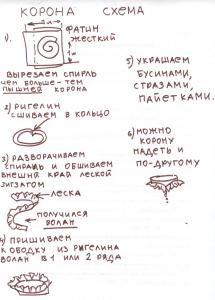 КОРОНА СХЕМА
1)
ФАТИН
ЖЕСТКИЙ
ВЫРЕЗАЕМ СПИРЛЬ
ЧЕМ БОЛЬШЕ - ТЕМ
ПЫШНЕЙ КОРОНА
2) РИГЕЛИН
СШИВАЕМ В КОЛЬЦО
3) РАЗВОРАЧИВАЕМ
СПИРАЛЬ И ОБШИВАЕМ
ВНЕШНИЙ КРАЙ ЛЕСКОЙ
ЗИГЗАГОМ
ЛЕСКА
ПОЛУЧИЛСЯ
ВОЛАН
4) ПРИШИВАЕМ
К ОБОДКУ ИЗ РИГЕЛИНА
ВОЛАН В 1 ИЛИ 2 РЯДА
5) УКРАШАЕМ
БУСИНАМИ,
СТРАЗАМИ,
ПАЙЕТКАМИ.
6) МОЖНО
КОРОНУ
НАДЕТЬ И
ПО-ДРУГОМУ